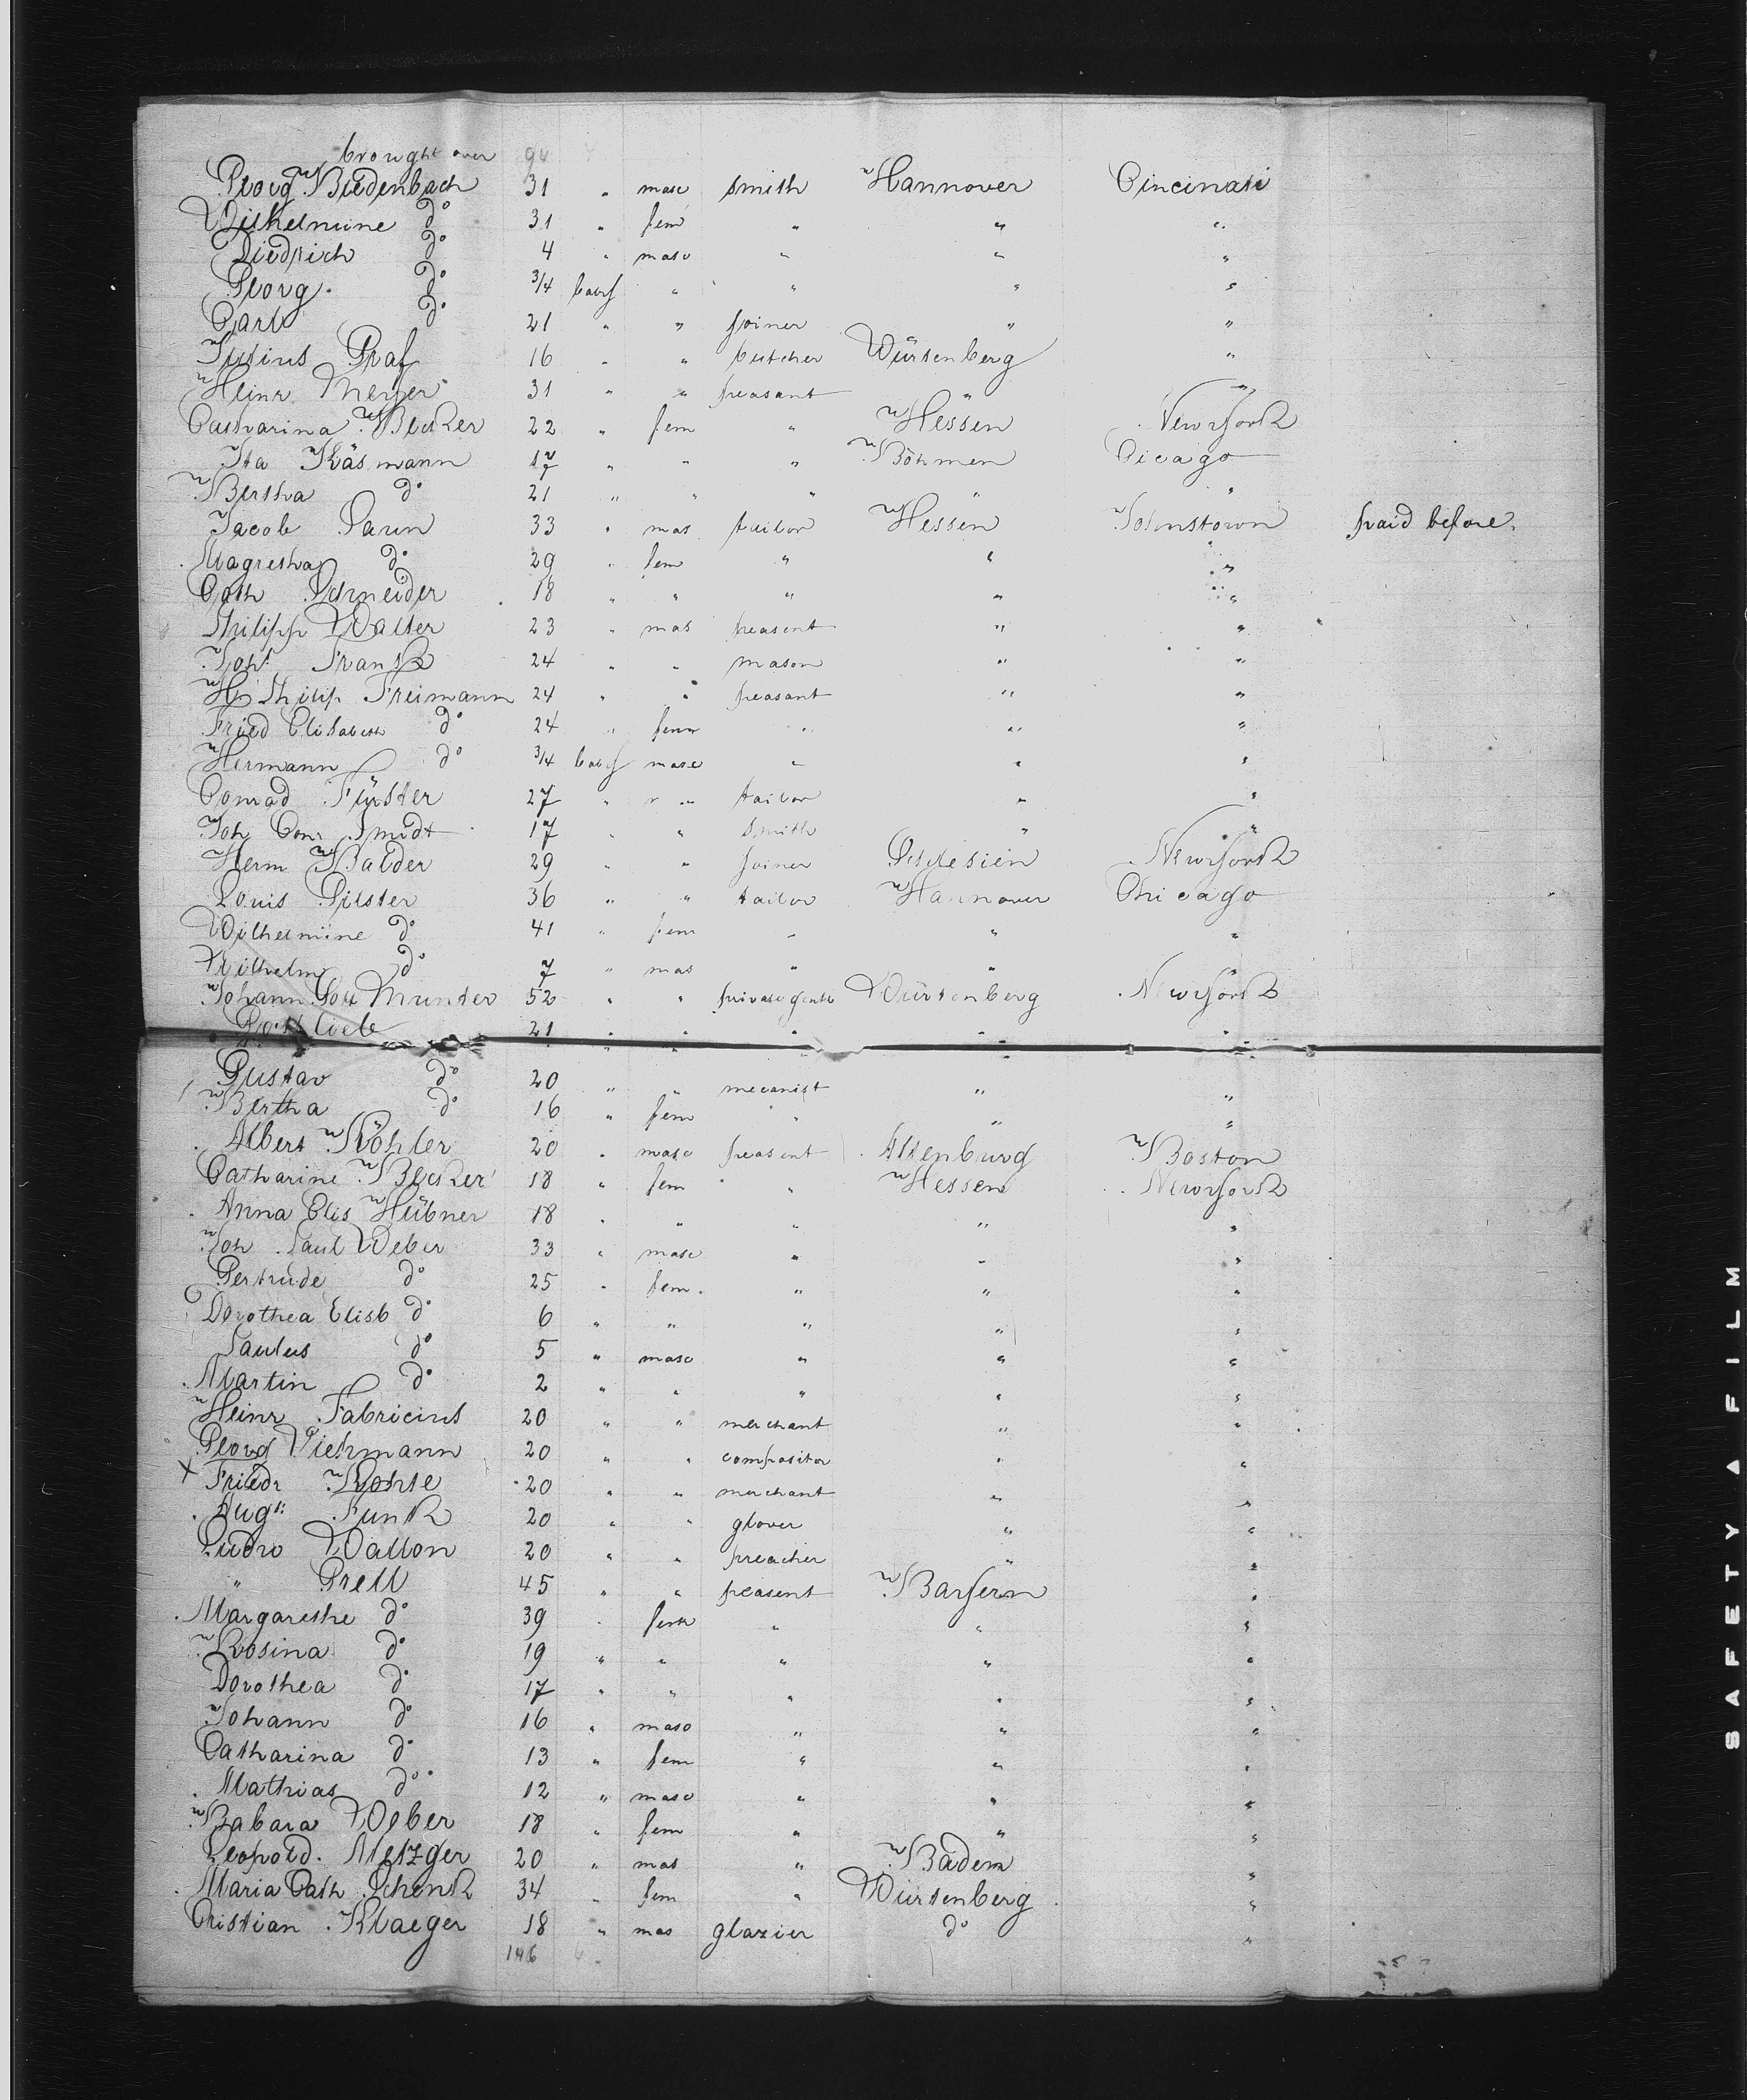 brought over 94
Georg Biedenbach 31 " masc smith Hannover Cincinati
Wilhelmine do 31 " fem " " "
Diedrich do 4 " masc " " "
Georg do 3/4 baby " " " "
Carl do 21 " " joiner " "
Julius Graf 16 " " butcher Würtenberg "
Heinr Meyer 31 " " peasant " "
Catharina Becker 22 " fem " Hessen Newyork
Ita Käsmann 17 " " " Böhmen Cicago
Bertha do 21 " " " " "
Jacob Paun 33 " mas tailor Hessen Johnstown paid before.
Magretha do 29 " fem " " "
Cath Schneider 18 " " " " "
Philipp Walter 23 " mas peasent " "
Joht Frank 24 " " mason " "
H Philip Freimann 24 " " peasant " "
Fried Elisabeth do 24 " fem " " "
Hermann do 3/4 baby masc " " "
Conrad Fürster 27 " " tailor " "
Joh Con Smidt 17 " " smith " "
Herm Balder 29 " " joiner Schlesien Newyork
Louis Pilster 36 " " tailor Hannover Chicago
Wilhelmine do 41 " fem " " "
Wilhelm do 7 " mas " " "
Johann Gott Munter 52 " " private gentl Würtenberg Newyork
Gottlieb 21 " " " " "
Gustav do 20 " " mecanist " "
Bertha do 16 " fem " " "
Albert Köhler 20 " masc peasent Altenburg Boston
Catharine Becker 18 " fem " Hessen Newyork
Anna Elis Hübner 18 " " " " "
Joh Paul Weber 33 " masc " " "
Gertrude do 25 " fem. " " "
Dorothea Elisb do 6 " " " " "
Paulus do 5 " masc " " "
Martin do 2 " " " " "
Heinr Fabricius 20 " " merchant " "
Georg Viehmann 20 " " compositor " "
x Friedr Kohle 20 " " merchant " "
Augt Funk 20 " " glover " "
Ludw Wallon 20 " " preacher " "
" Prell 45 " " peasent Bayern "
Margarethe do 39 " fem " " "
Rosina do 19 " " " " "
Dorothea do 17 " " " " "
Johann do 16 " masc " " "
Catharina do 13 " fem " " "
Mathias do 12 " masc " " "
Babara Weber 18 " fem " " "
Leopold Metzger 20 " mas " Baden "
Maria Cath Schenk 34 " fem " Würtenberg "
Cristian Klaeger 18 " mas glazier do "
146
SAFETY ▲ FILM